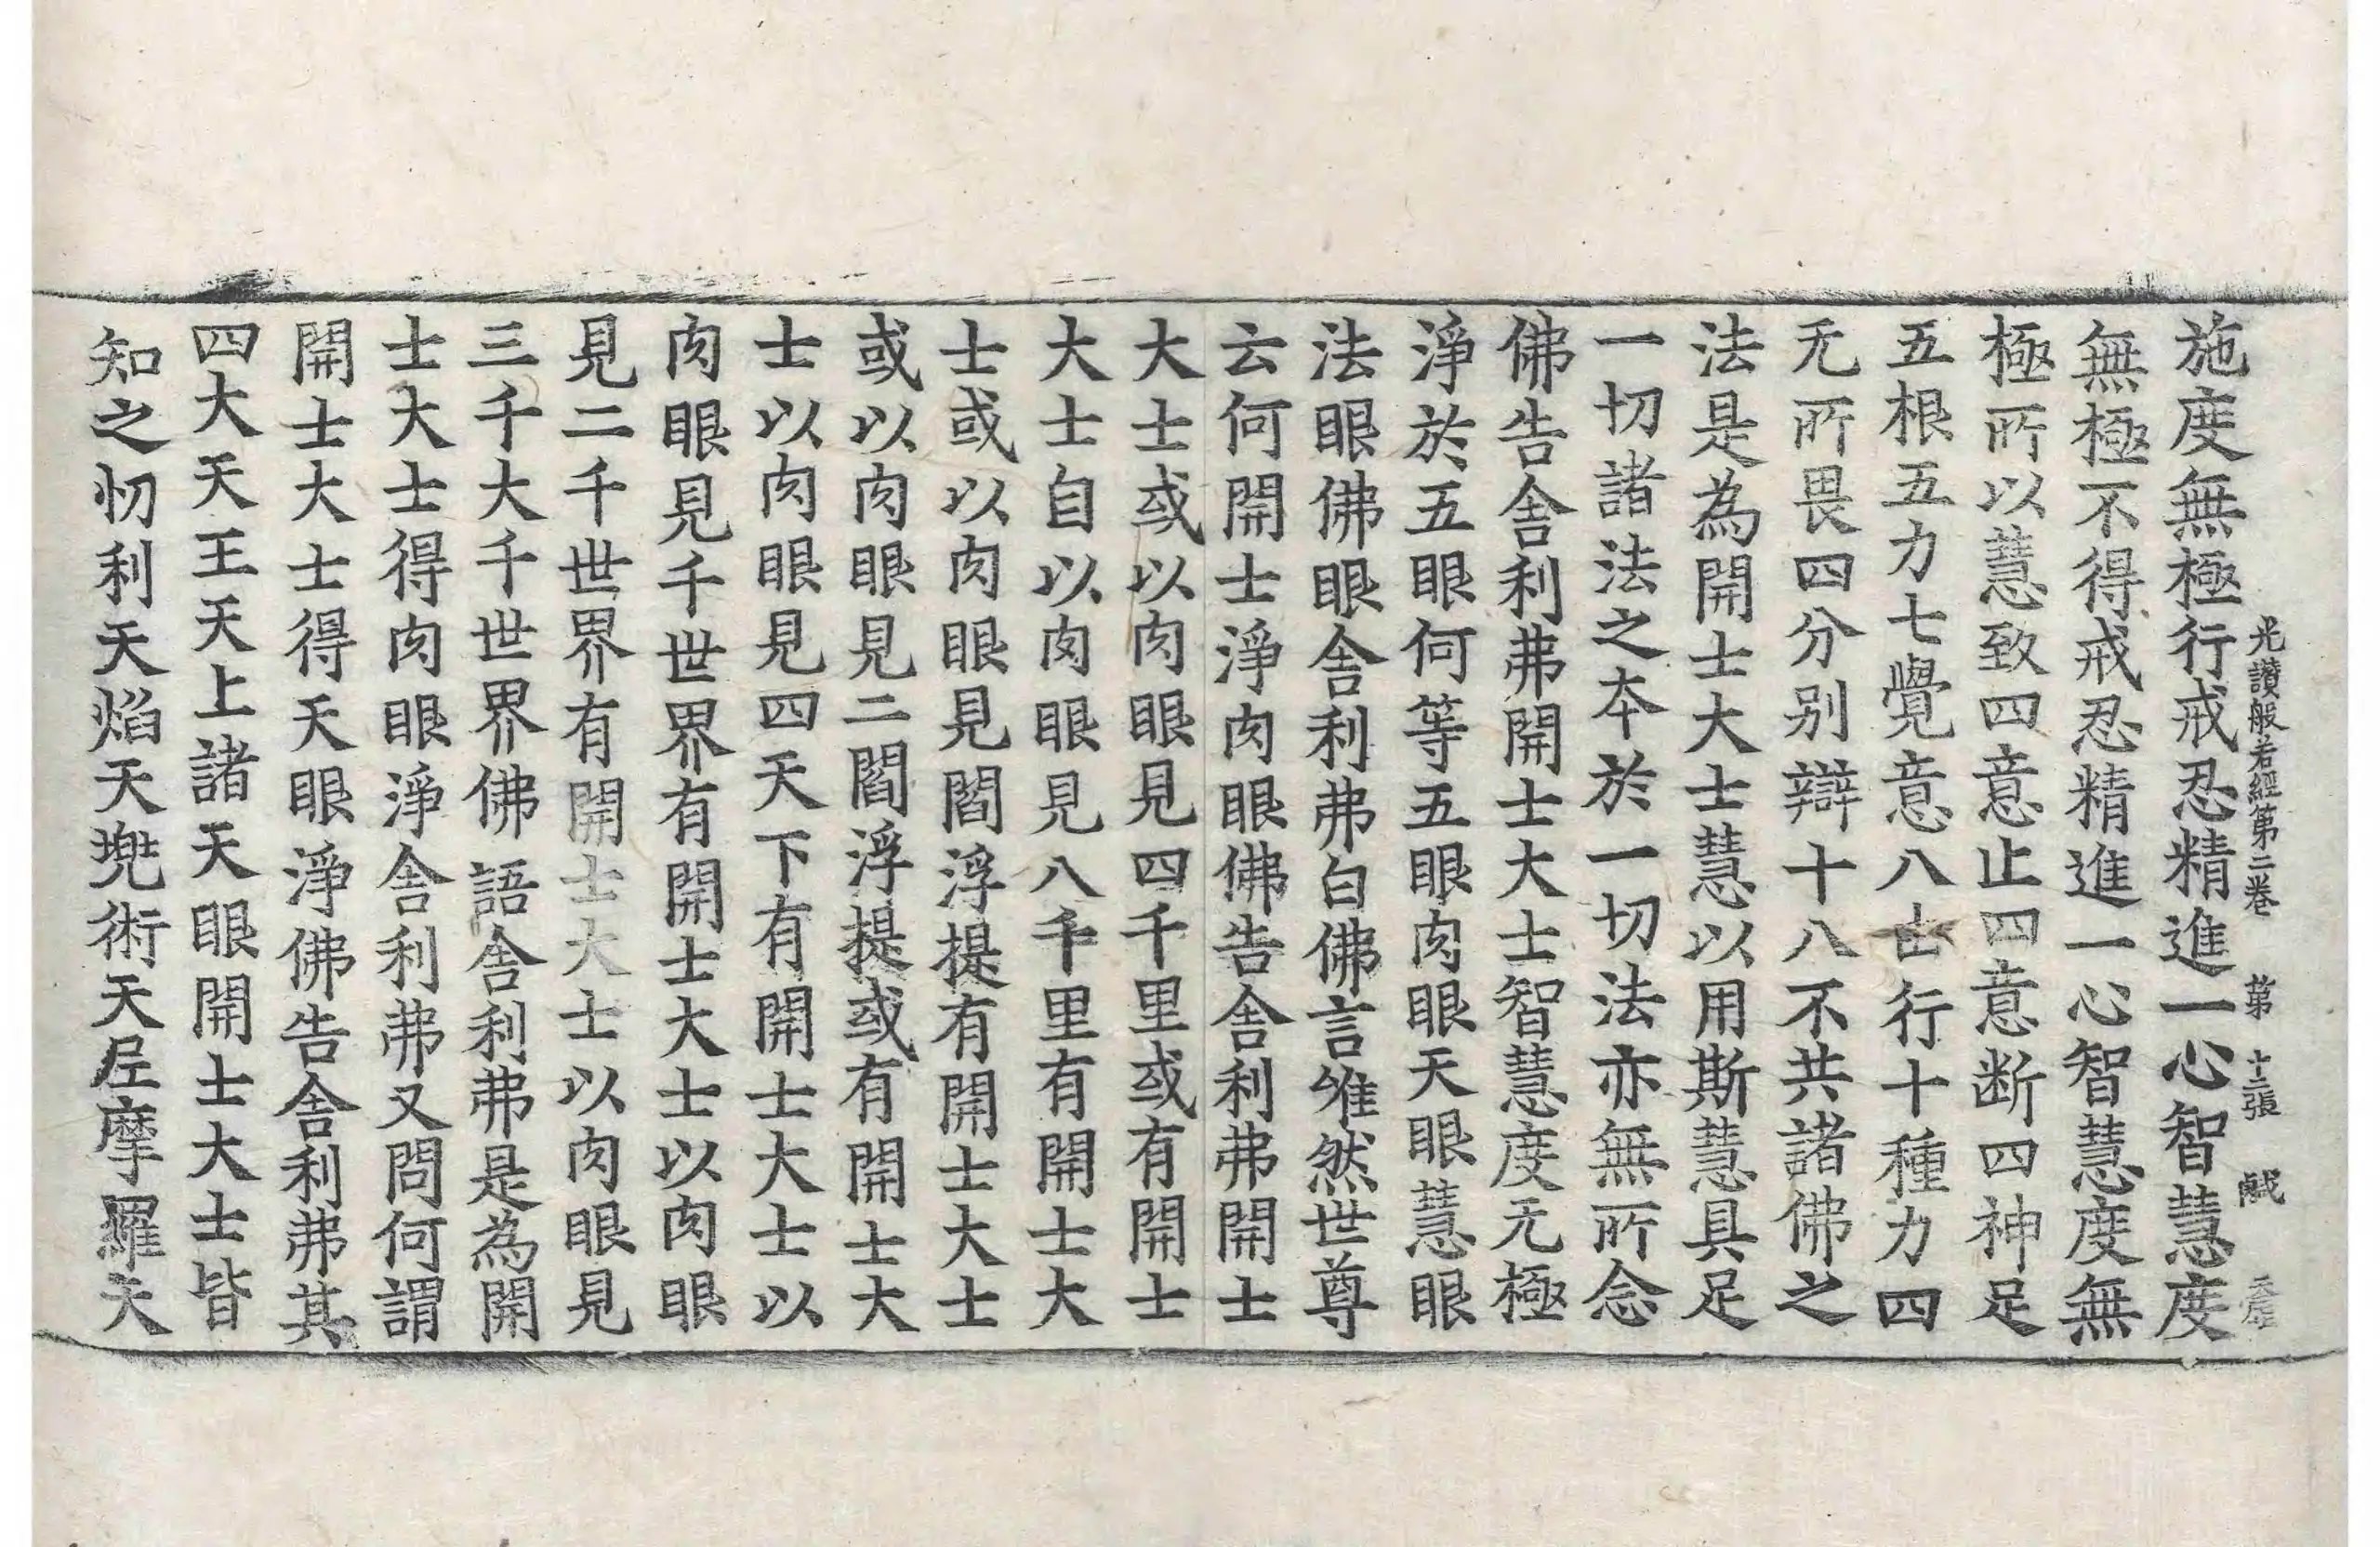 光讚般若經第二卷 第十二張 鹹
施度無極行戒忍精進一心智慧度
無極不得戒忍精進一心智慧度無
極所以慧致四意止四意断四神足
五根五力七覺意八士行十種力四
无所畏四分别辯十八不共諸佛之
法是為開士大士慧以用斯慧具足
一切諸法之本於一切法亦無所念
佛告舍利弗開士大士智慧度无極
淨於五眼何等五眼肉眼天眼慧眼
法眼佛眼舍利弗白佛言唯然世尊
云何開士淨肉眼佛告舍利弗開士
大士或以肉眼見四千里或有開士
大士自以肉眼見八千里有開士大
士或以肉眼見閻浮提有開士大士
或以肉眼見二閻浮提或有開士大
士以肉眼見四天下有開士大士以
肉眼見千世界有開士大士以肉眼
見二千世界有開士大士以肉眼見
三千大千世界佛語舍利弗是為開
士大士得肉眼淨舍利弗又問何謂
開士大士得天眼淨佛告舍利弗其
四大天王天上諸天眼開士大士皆
知之忉利天焰天兠術天尼摩羅天